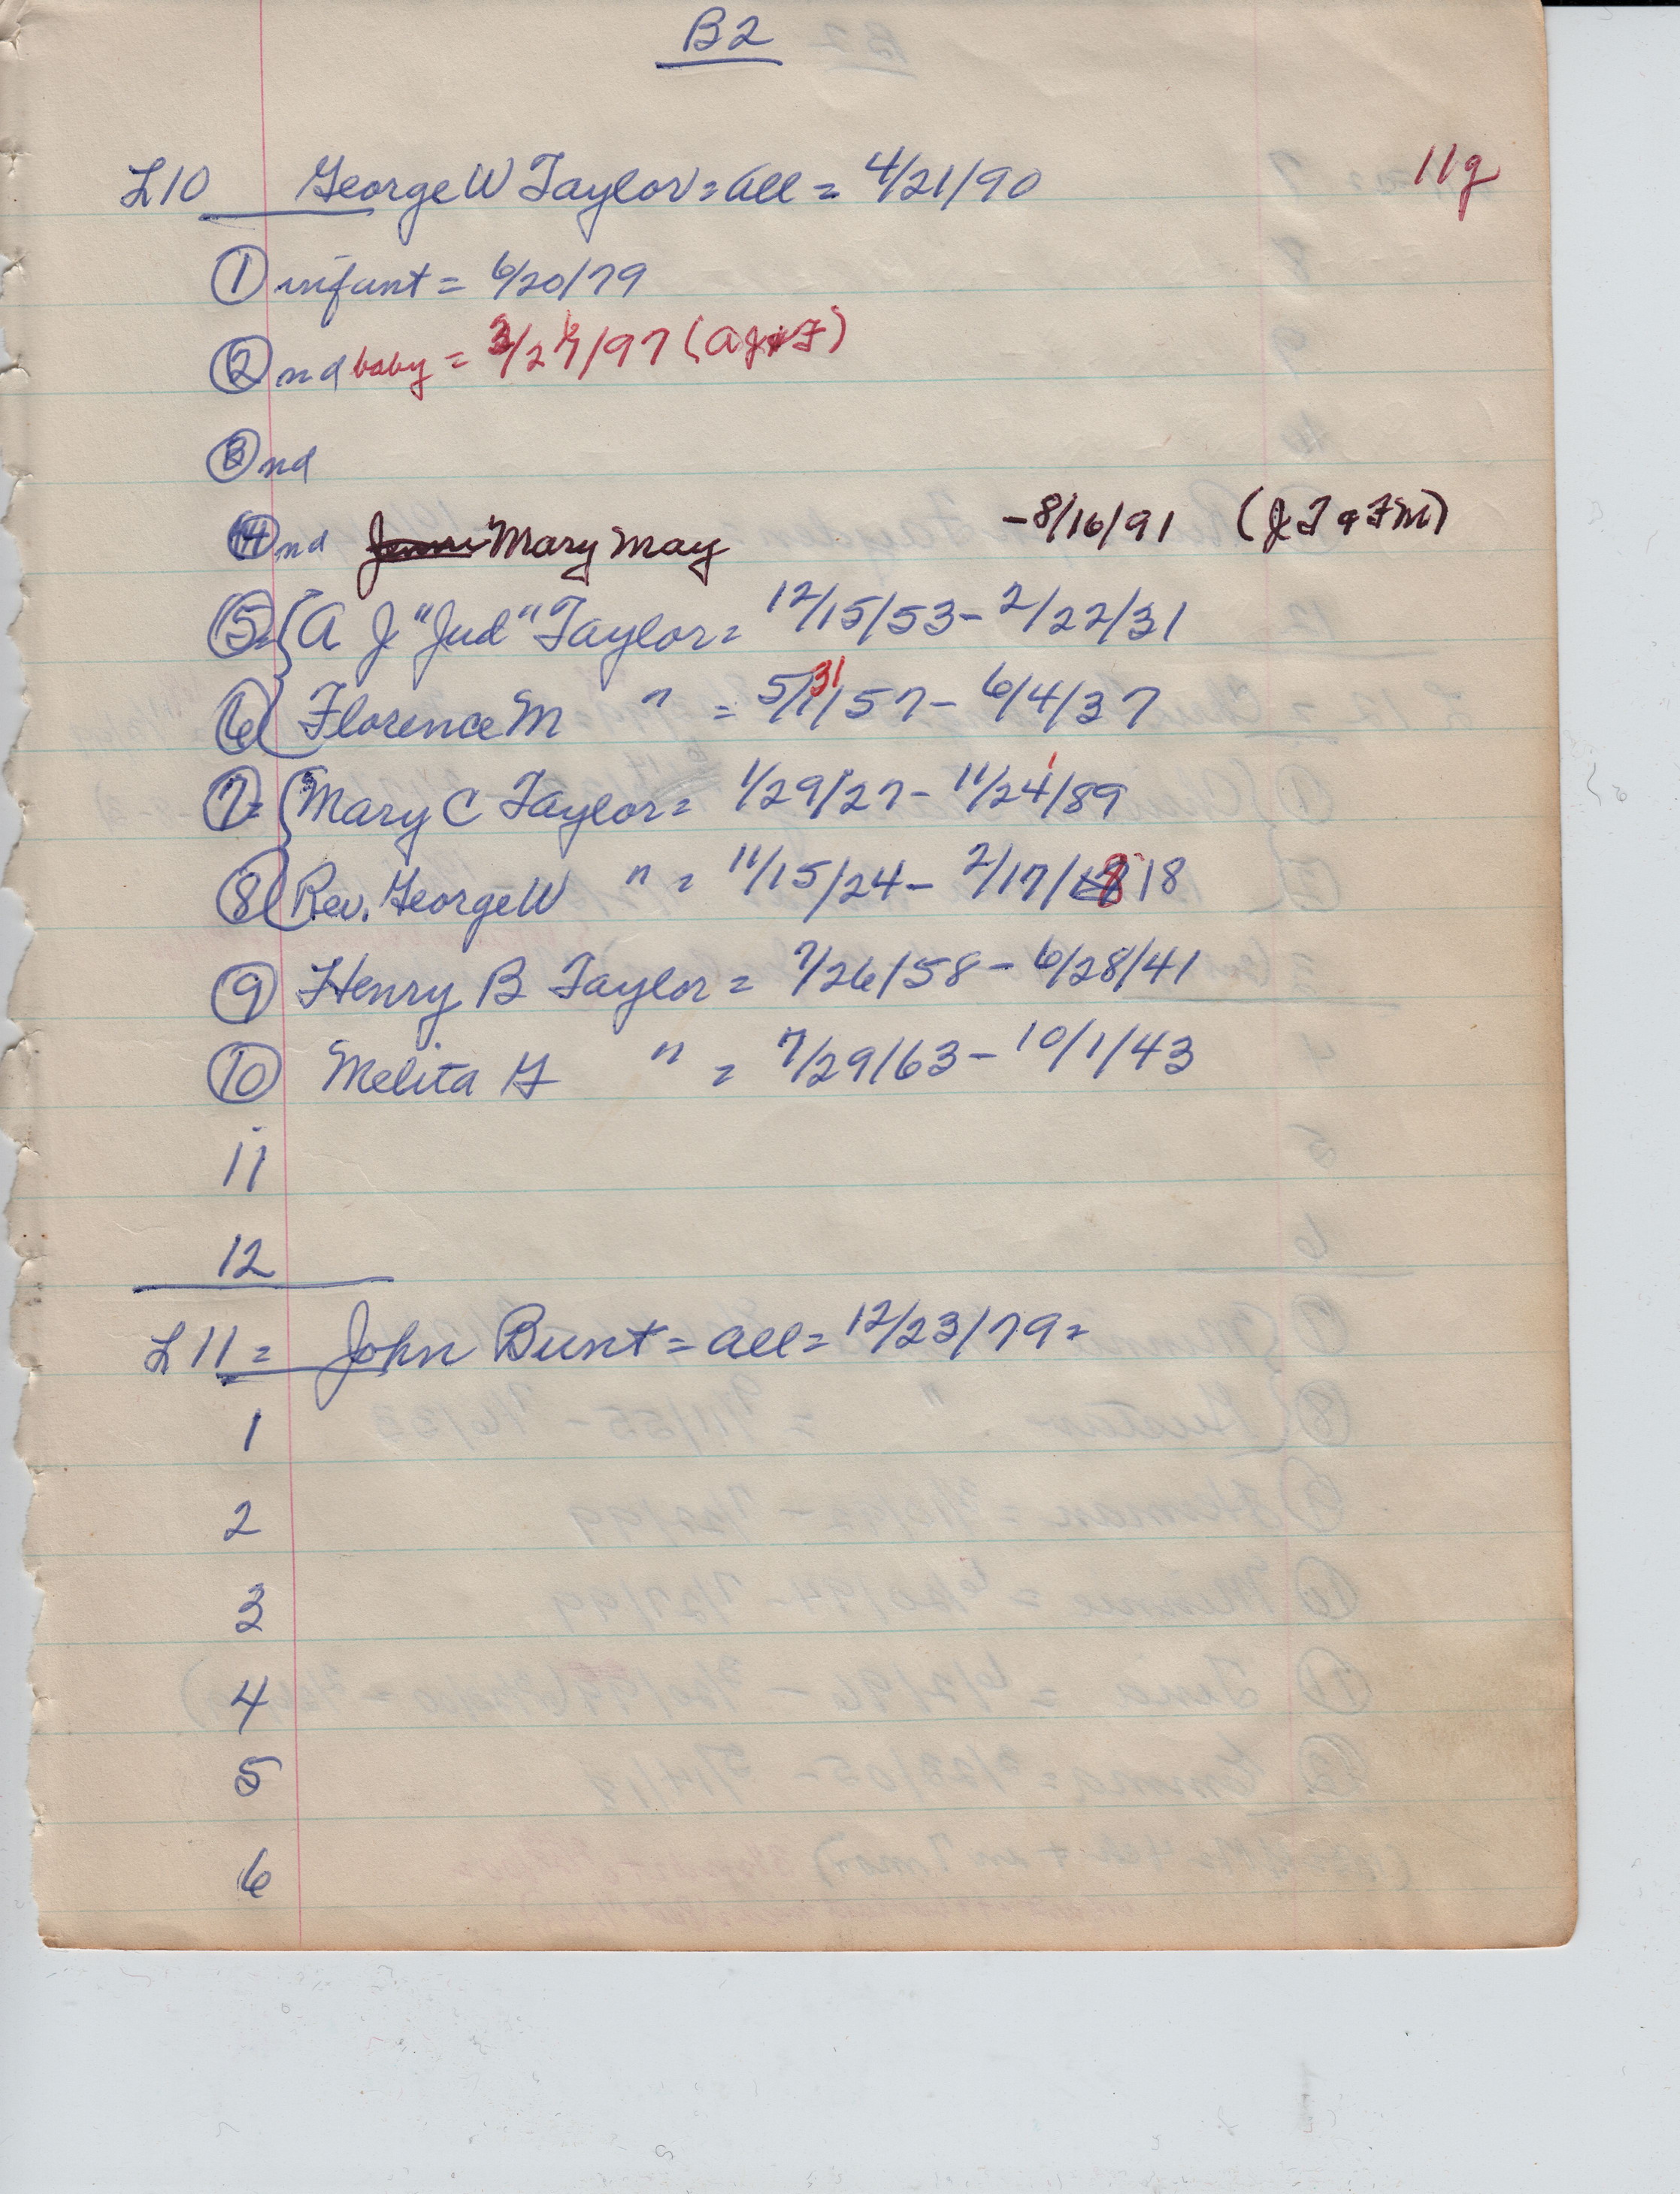 B2
L10 George W Taylor = all = 4/21/90 11g
① infant = 6/20/79
② nd baby = 3/27/97 (A J & F)
③ nd
④ nd Mary May - 8/16/91 (J T & F M)
⑤ = { A J "Jud" Taylor = 12/15/53 - 2/22/31
⑥ { Florence M " = 5/31/57 - 6/4/37
⑦ = { Mary C Taylor = 1/29/27 - 11/24/89
⑧ { Rev. George W " = 11/15/24 - 2/17/18
⑨ Henry B Taylor = 7/26/58 - 6/28/41
⑩ Melita G " = 7/29/63 - 10/1/43
11
12
L11 = John Bunt = all = 12/23/79 =
1
2
3
4
5
6